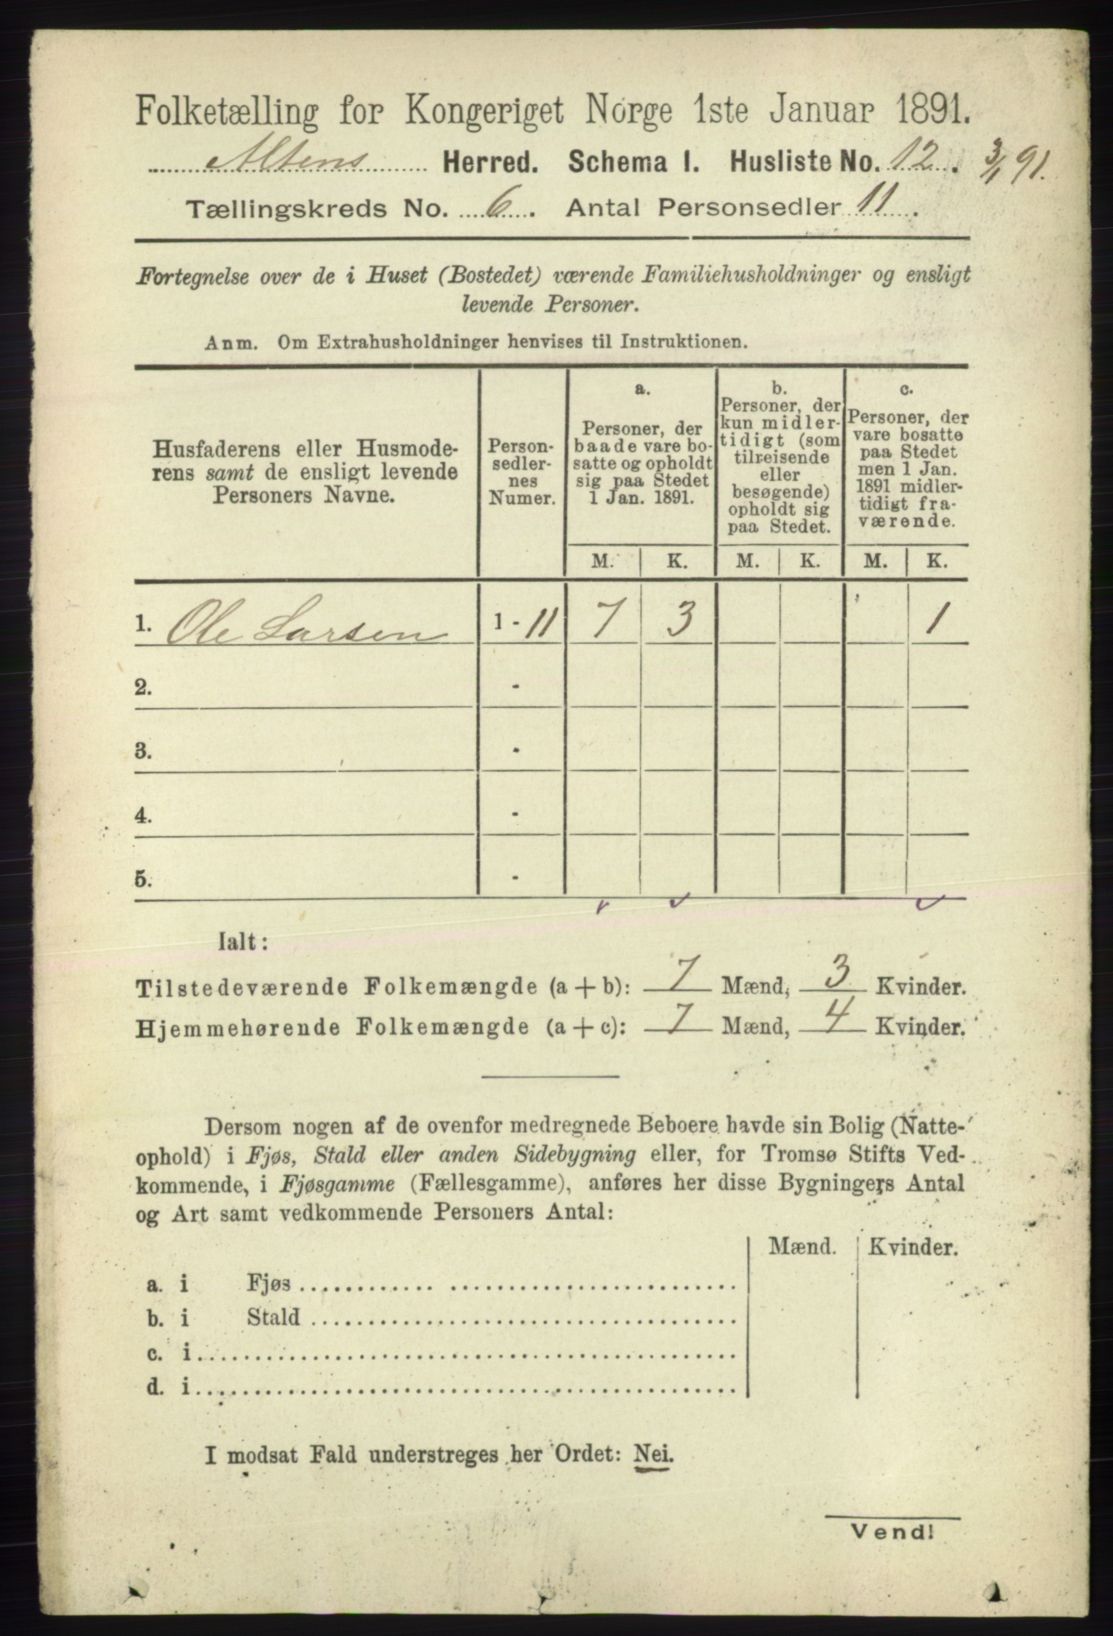 Folketælling for Kongeriget Norge 1ste Januar 1891.
Altens Herred. Schema I. Husliste No. 12. 3/1 91.
Tællingskreds No. 6. Antal Personsedler 11.
Fortegnelse over de i Huset (Bostedet) værende Familiehusholdninger og ensligt
levende Personer.
Anm. Om Extrahusholdninger henvises til Instruktionen.
Husfaderens eller Husmode-
rens samt de ensligt levende
Personers Navne.
Person-
sedler-
nes
Numer.
a.
Personer, der
baade vare bo-
satte og opholdt
sig paa Stedet
1 Jan. 1891.
b.
Personer, der
kun midler-
tidigt (som
tilreisende
eller
besøgende)
opholdt sig
paa Stedet.
c.
Personer, der
vare bosatte
paa Stedet
men 1 Jan.
1891 midler-
tidigt fra-
værende.
M. K. M. K. M. K.
1. Ole Larsen 1 - 11 7 3 1
2. -
3. -
4. -
5. -
Ialt:
Tilstedeværende Folkemængde (a + b): 7 Mænd, 3 Kvinder.
Hjemmehørende Folkemængde (a + c): 7 Mænd, 4 Kvinder.
Dersom nogen af de ovenfor medregnede Beboere havde sin Bolig (Natte-
ophold) i Fjøs, Stald eller anden Sidebygning eller, for Tromsø Stifts Ved-
kommende, i Fjøsgamme (Fællesgamme), anføres her disse Bygningers Antal
og Art samt vedkommende Personers Antal:
Mænd. Kvinder.
a. i Fjøs
b. i Stald
c. i
d. i
I modsat Fald understreges her Ordet: Nei.
Vend!